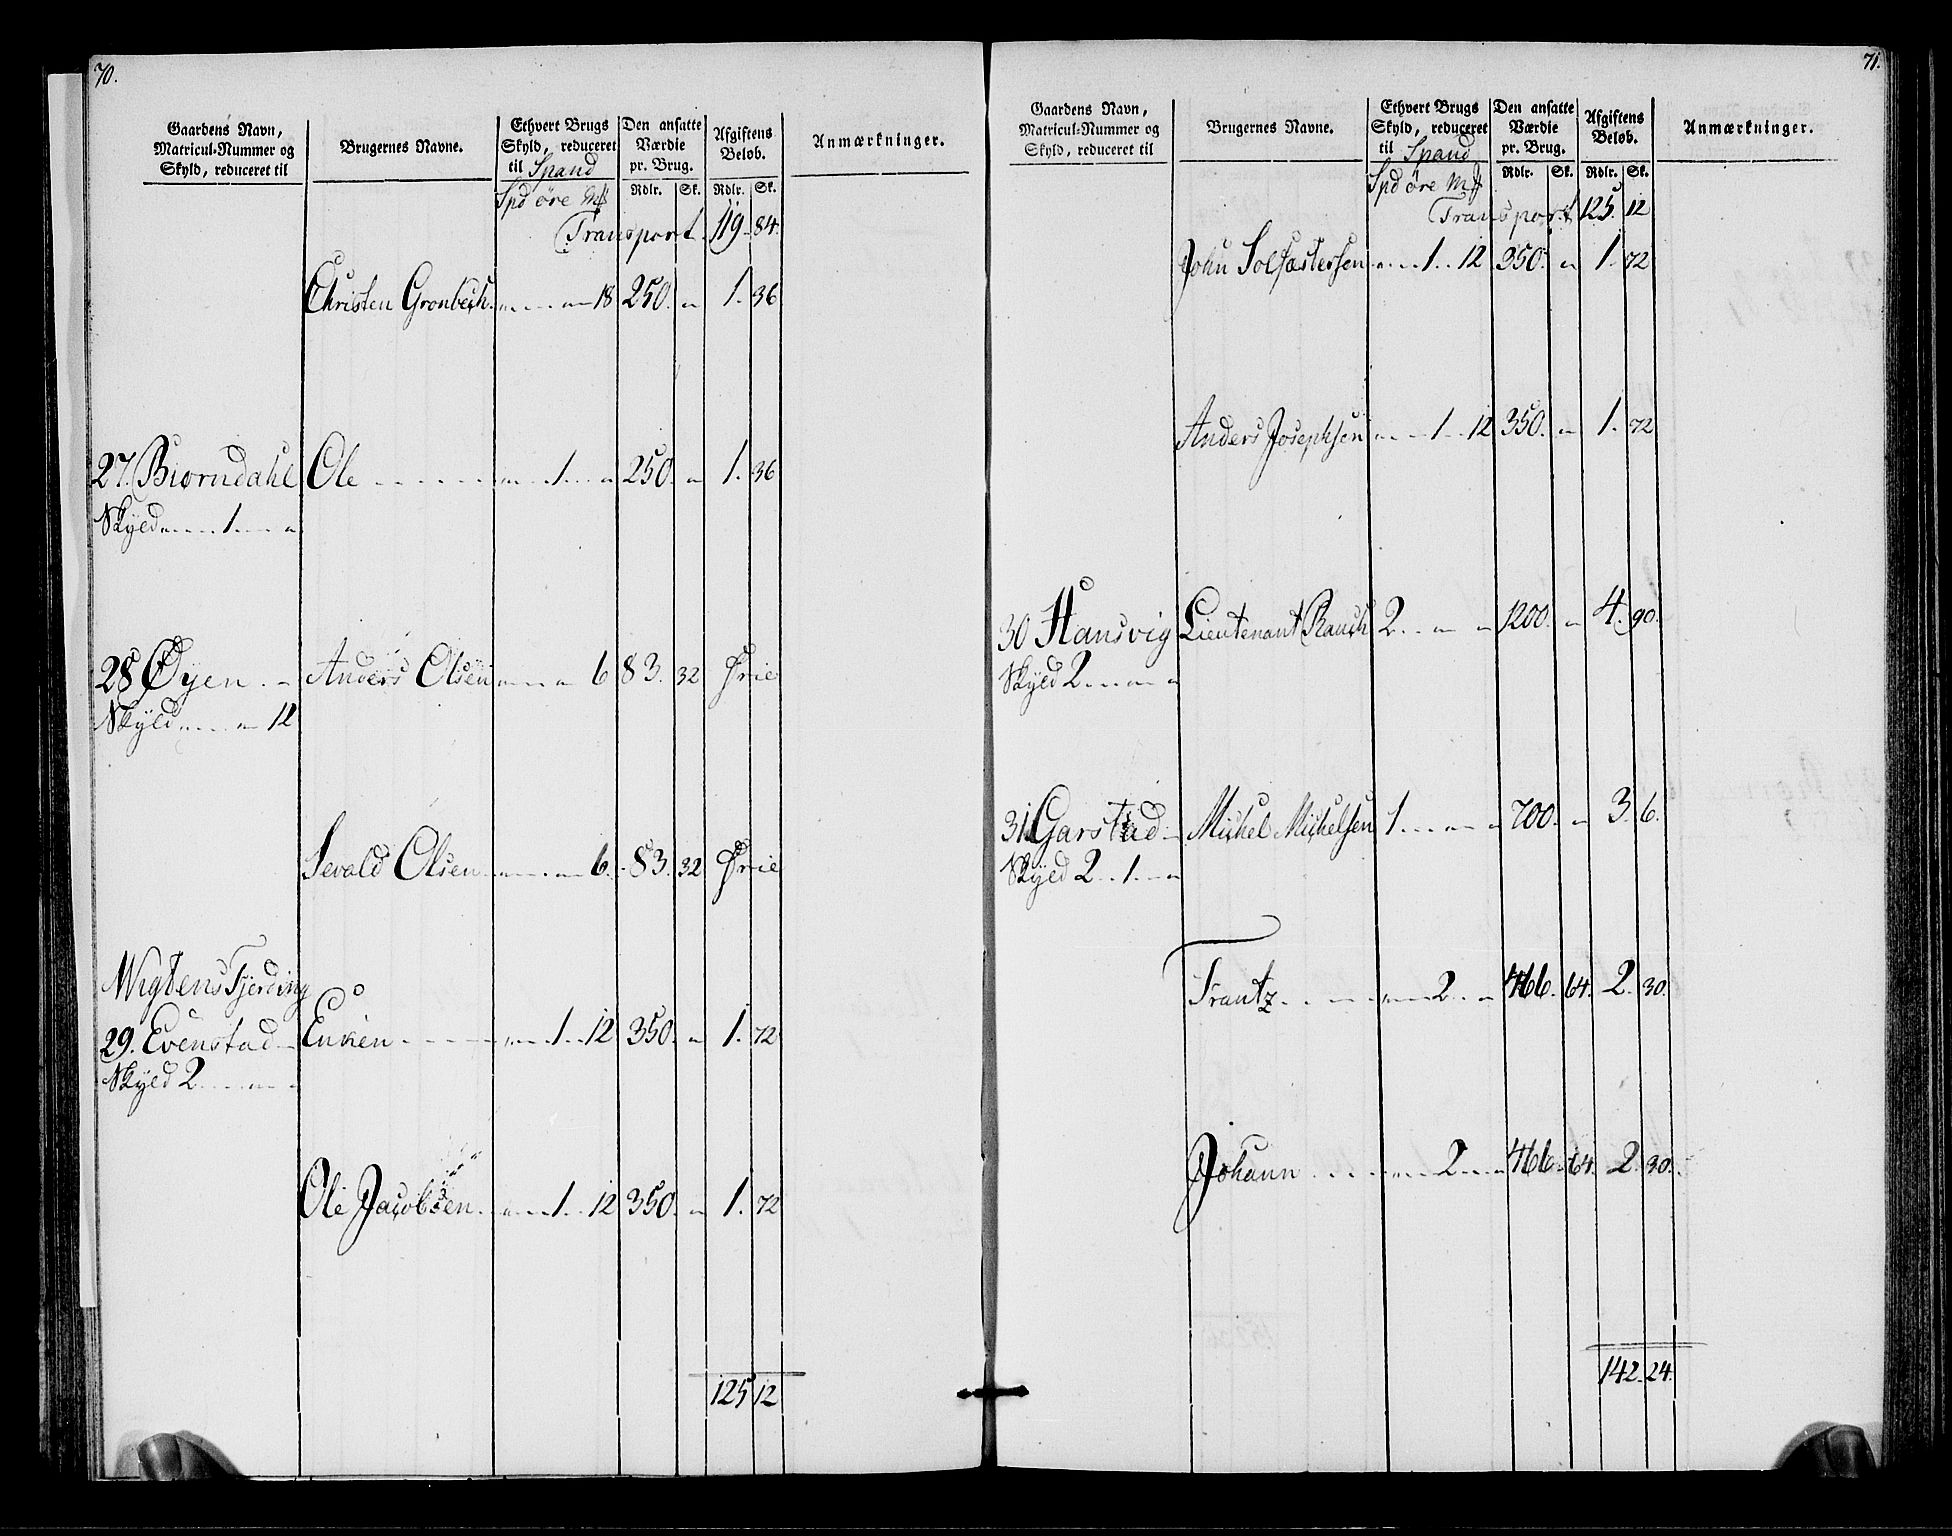 70.
Gaardens Navn, Matricul-Nummer og Skyld, reduceret til
Brugernes Navne.
Ethvert Brugs Skyld, reduceret til Spand
Den ansatte Værdie pr. Brug.
Afgiftens Beløb.
Anmærkninger.
Spd øre M₰ Rdlr. Sk. Rdlr. Sk.
Transport 119. 84.
Christen Gronbech 18 250. 1. 36
27. Biorndahl Ole 1 250. 1. 36
Skyld 1
28 Øyen Anders Olsen 6 83. 32 Frie
Skyld 12
Sevald Olsen 6. 83. 32 Frie
Wigtens Fjerding
29. Evenstad Enken 1 12 350. 1. 72
Skyld 2
Ole Jacobsen 1 12 350. 1. 72
125 12
71.
Gaardens Navn, Matricul-Nummer og Skyld, reduceret til
Brugernes Navne.
Ethvert Brugs Skyld, reduceret til Spand
Den ansatte Værdie pr. Brug.
Afgiftens Beløb.
Anmærkninger.
Spd øre M₰ Rdlr. Sk. Rdlr. Sk.
Transport 125. 12
John Solfæstersen 1 12 350. 1. 72
Anders Josephsen 1 12 350. 1. 72
30 Hansvig Lieutenant Rausch 2 1200. 4. 90.
Skyld 2
31 Garstad Michel Michelsen 1 700. 3. 6.
Skyld 2 1
Frantz 2 466. 64. 2. 30.
Johann 2 466. 64. 2. 30.
142. 24.